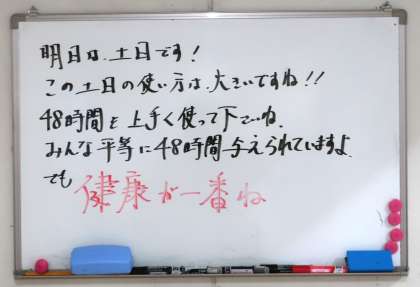 明日は、土日です!
この土日の使い方は、大きいですね!!
48時間を上手く使って下さいね、
みんな平等に48時間与えられていますよ、
でも
健康が一番ね